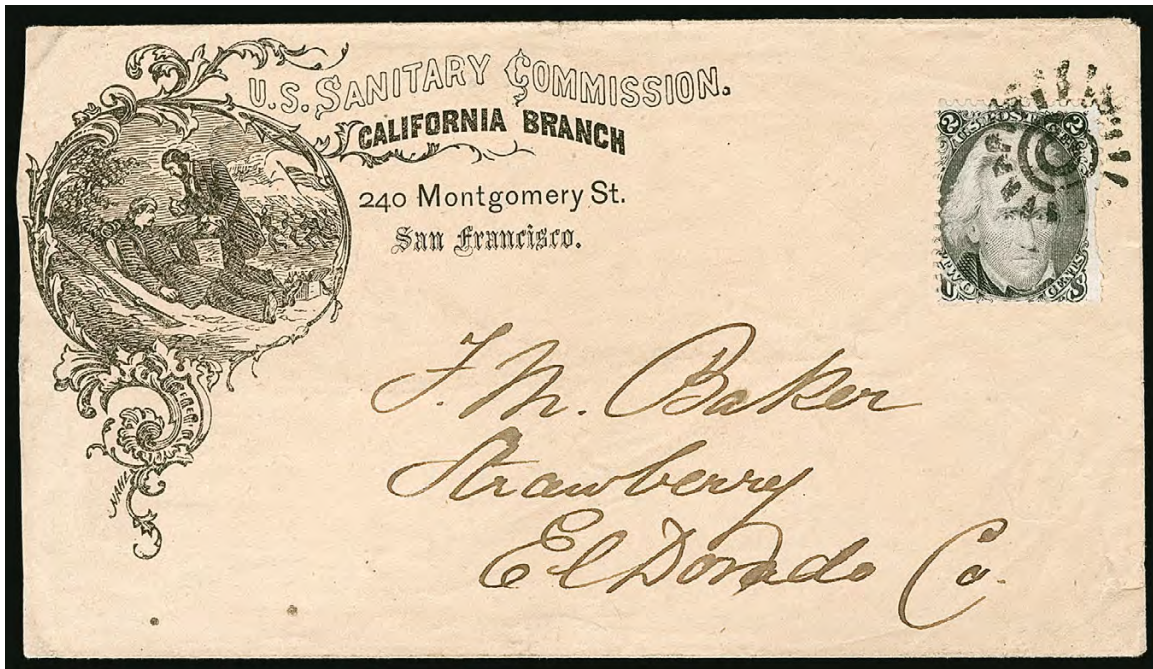 U.S. SANITARY COMMISSION.
CALIFORNIA BRANCH
240 Montgomery St.
San Francisco.
NAHL
2 U.S. POSTAGE 2
TWO CENTS
U S
J. M. Baker
Strawberry
El Dorado Co.